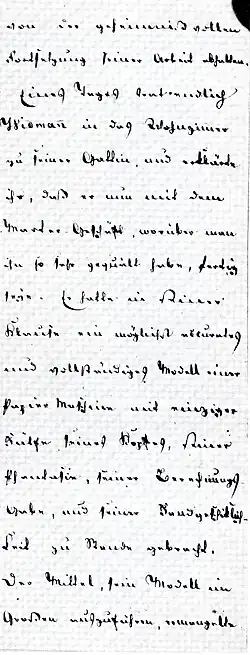 von der geheimniß vollen
Fortsetzung seiner Arbeit abhalten.
Eines Tages trat endlich
Widman̄ in das Wohnzimer
zu seiner Gattin, und erklärte
ihr, daß er nun mit dem
Marter Geschäft, worüber man
ihn so sehr gequält habe, fertig
seye. Er hatte in seiner
Klause ein möglichst accurates
und vollständiges Modell einer
Papier Maschine mit einziger
Hülfe seines Kopfes, seiner
Phantasie, seiner Berechnungs
Gabe, und seiner Handgeschicklich-
keit zu Stande gebracht.
Der Mittel, sein Modell im
Großen auszuführen, ermangelte